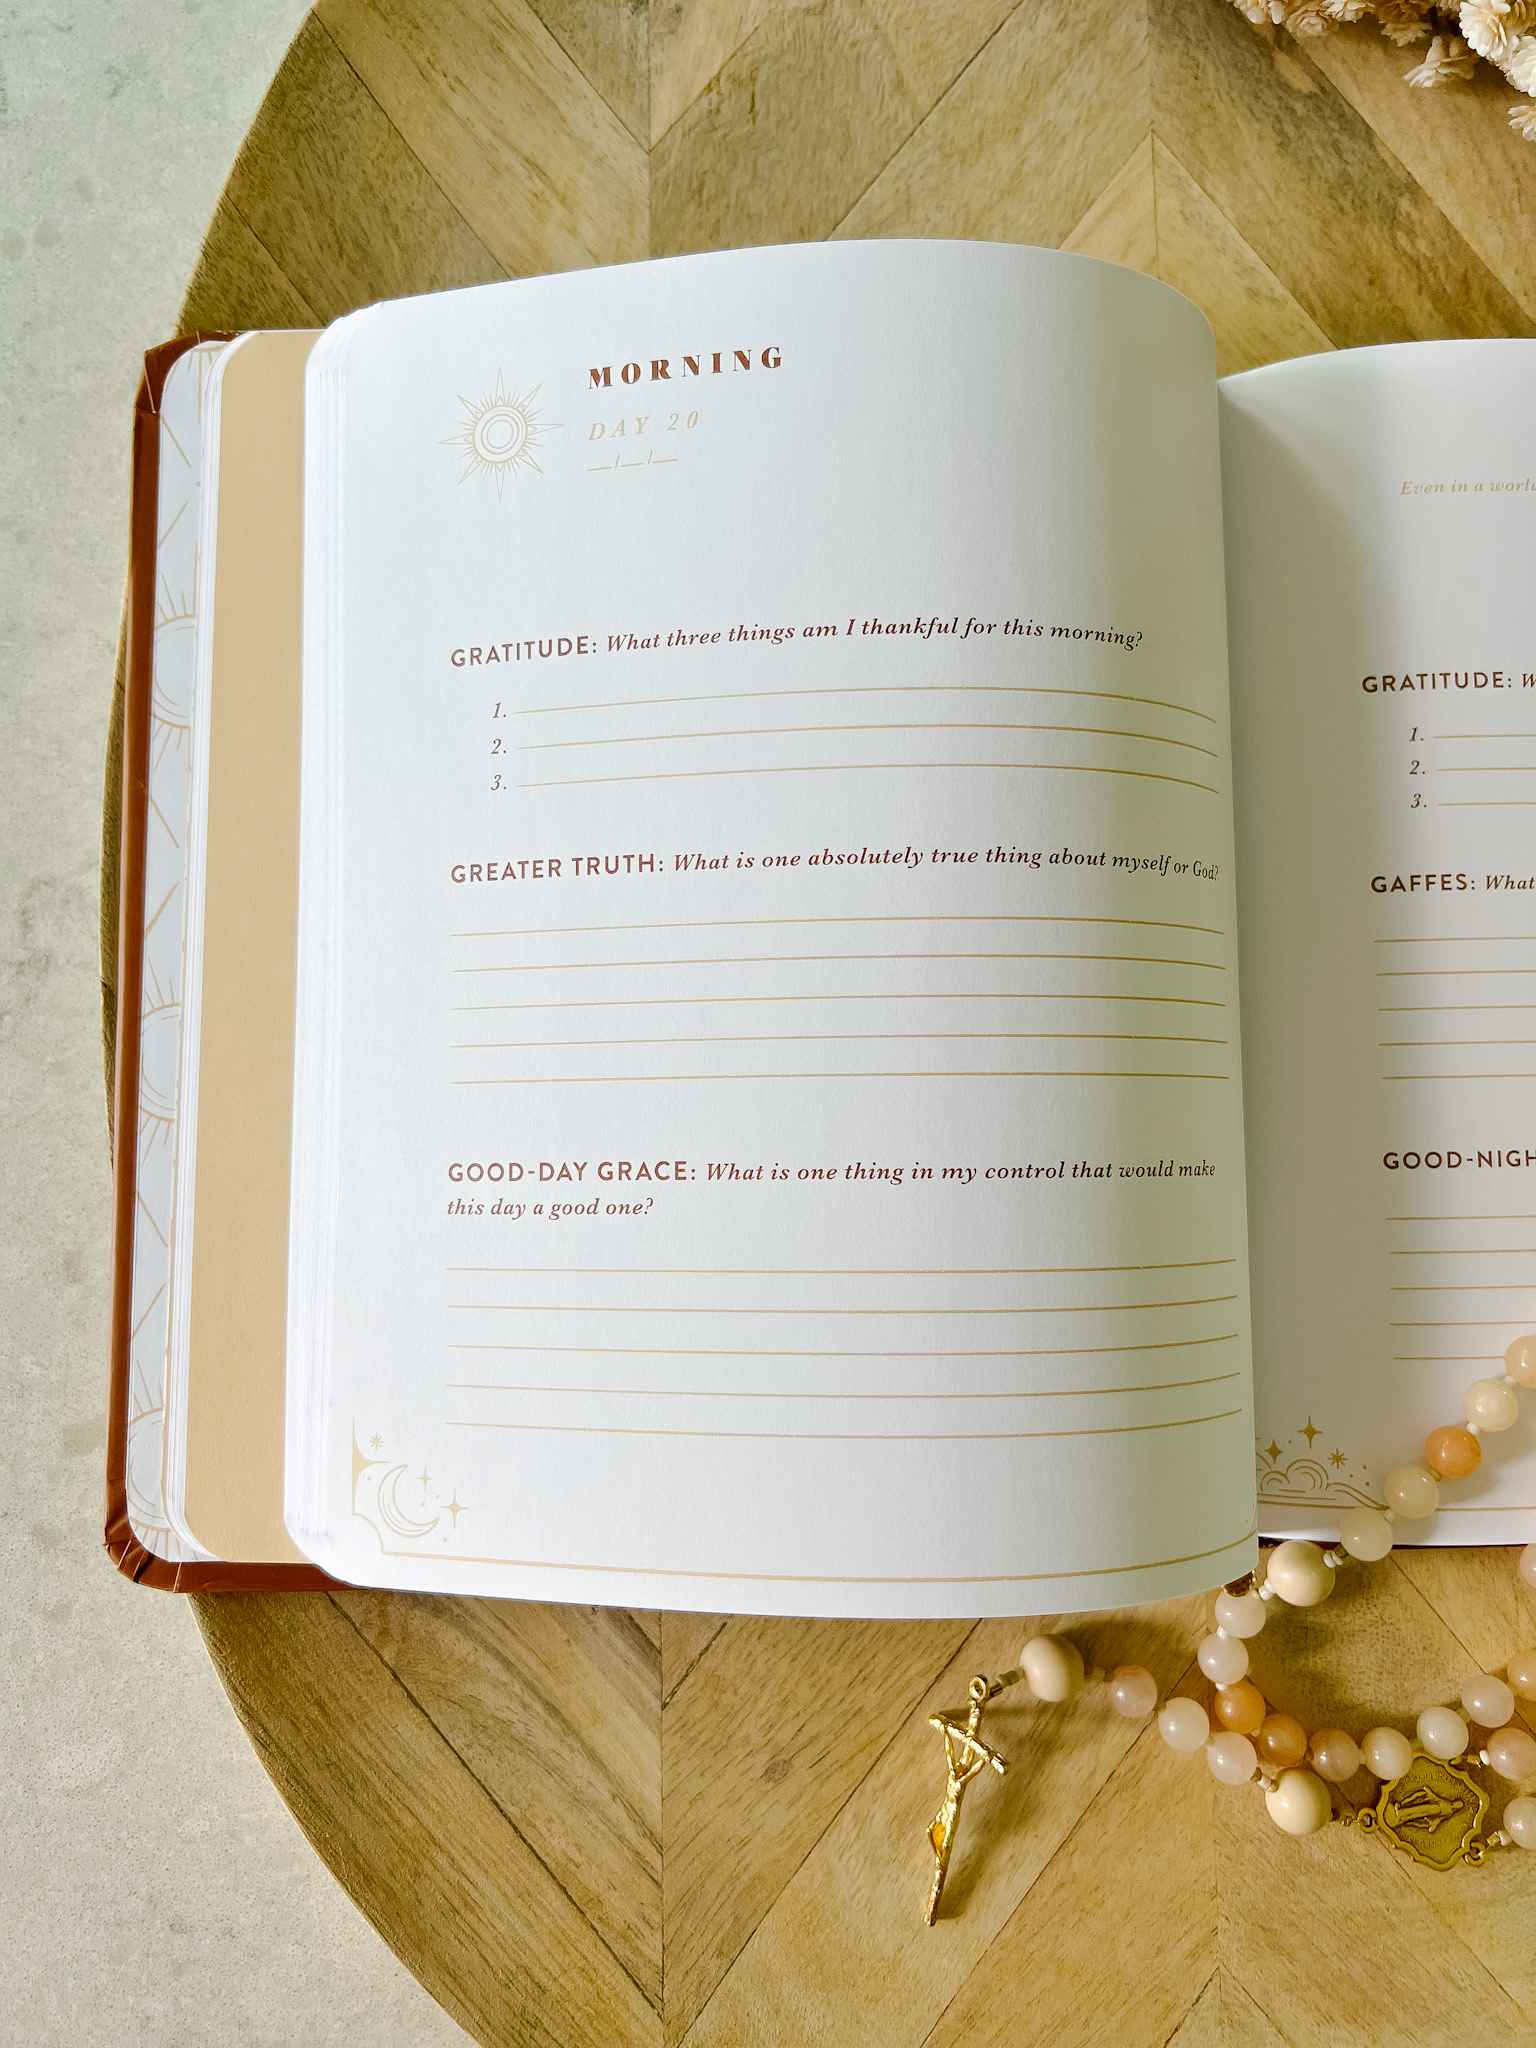 MORNING
DAY 20
__/__/__
GRATITUDE: What three things am I thankful for this morning?
1.
2.
3.
GREATER TRUTH: What is one absolutely true thing about myself or God?
GOOD-DAY GRACE: What is one thing in my control that would make
this day a good one?
Even in a
GRATITUDE:
1.
2.
3.
GAFFES: What